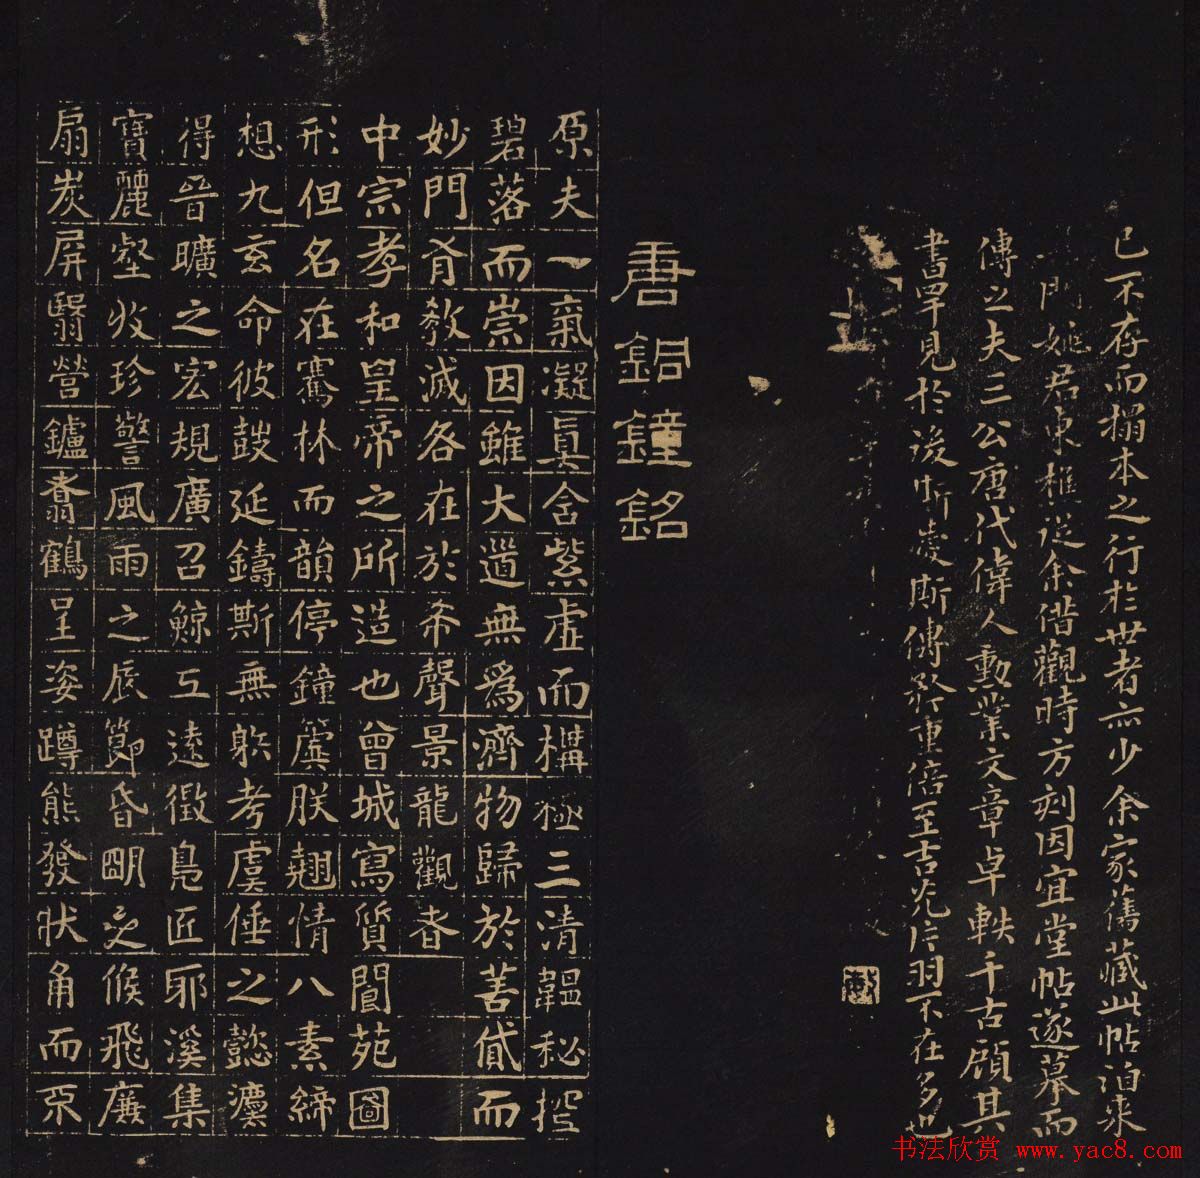 已不存而搨本之行於世者亦少余家舊藏此帖泊來
門姚君東樵從余借觀時方刻因宜堂帖遂摹而
傳之夫三公唐代偉人勳業文章卓軼千古顧其
書罕見於後斯傳矜重倍至吉光片羽不在多也
唐銅鐘銘
原夫一氣凝真含紫虛而構極三清韞秘控
碧落而崇因雖大道無為濟物歸於善貸而
妙門有教滅咎在於希聲景龍觀者
中宗孝和皇帝之所造也曾城寫質閬苑圖
形但名在騫林而韻停鐘簴朕翹情八素締
想九玄命彼鼓延鑄斯無射考虞倕之懿濩
得晉曠之宏規廣召鯨工遠徵鳧匠耶溪集
寶麗壑收珍警風雨之辰節昏明之候飛廉
扇炭屏翳營鑪翥鶴呈姿蹲熊發狀角而不
书法欣赏 www.yac8.com